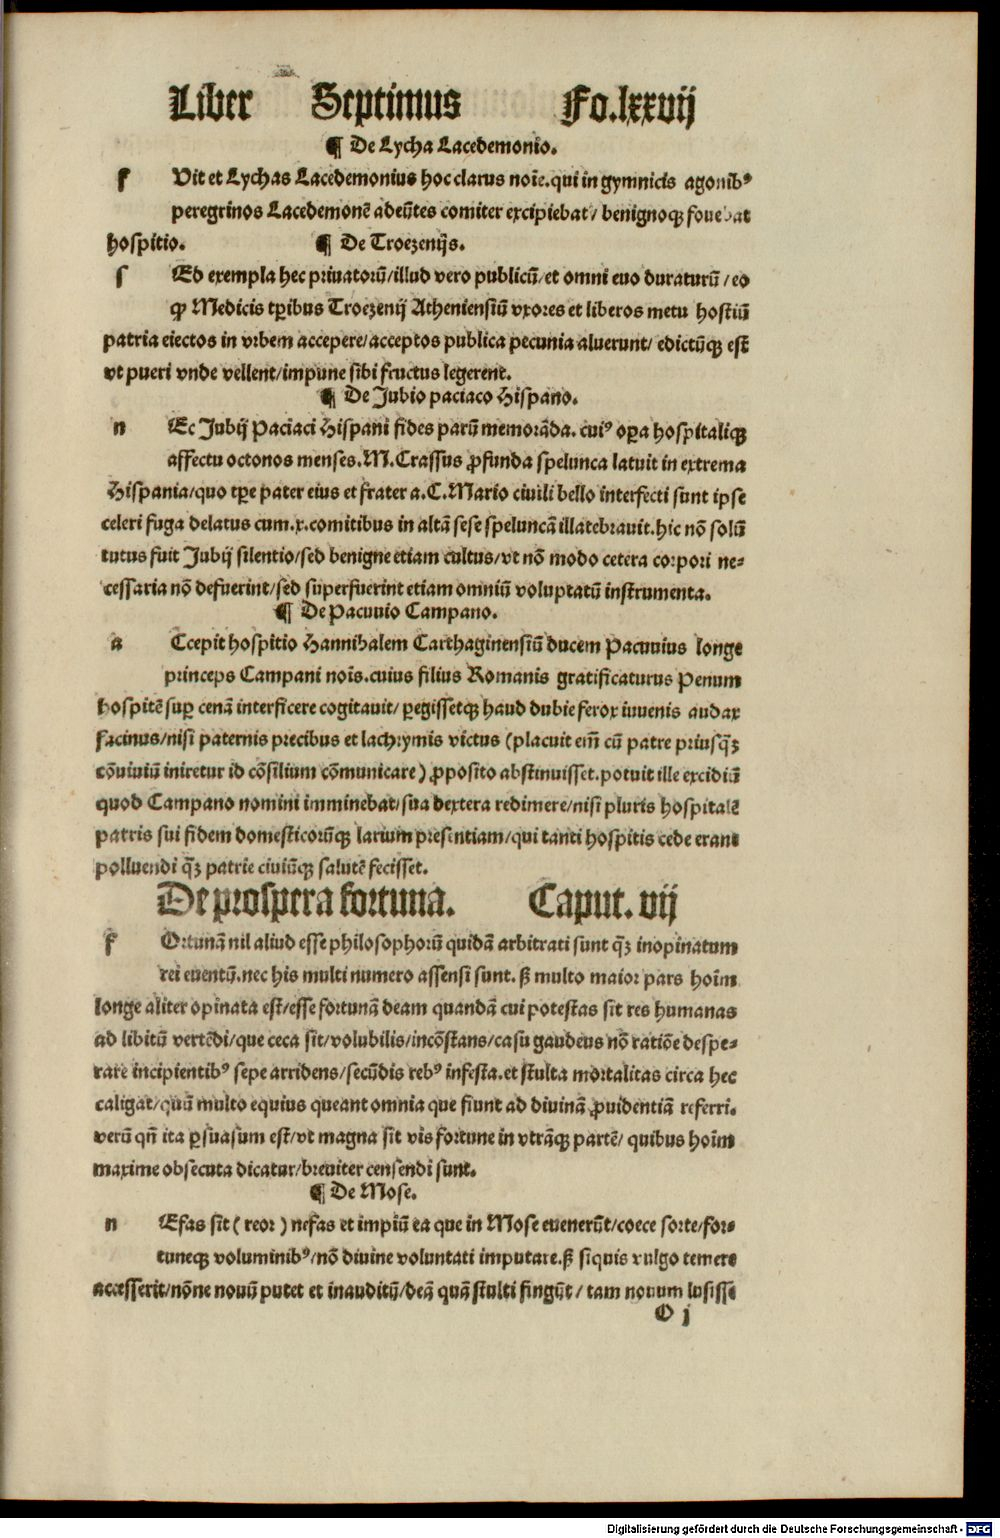 Liber Septimus Fo.lxxvij
¶ De Lycha Lacedemonio.
f Uit et Lychas Lacedemonius hoc clarus noīe.qui in gymnicis agonibꝰ
peregrinos Lacedemonē adeūtes comiter excipiebat/ benignoqꝫ fouebat
hospitio. ¶ De Troezenijs.
s Ed exempla hec priuatorū/illud vero publicū/et omni euo duraturū/eo
ꝙ Medicis tꝑibus Troezenij Atheniensiū vxores et liberos metu hostiū
patria eiectos in vrbem accepere/acceptos publica pecunia aluerunt/ edictūqꝫ est
vt pueri vnde vellent/impune sibi fructus legerent.
¶ De Jubio paciaco Hispano.
n Ec Jubij Paciaci Hispani fides parū memorāda. cuiꝰ oꝑa hospitaliqꝫ
affectu octonos menses.M.Crassus ꝓfunda spelunca latuit in extrema
Hispania/quo tꝑe pater eius et frater a.C.Mario ciuili bello interfecti sunt ipse
celeri fuga delatus cum.x.comitibus in altā sese speluncā illatebrauit.hic nō solū
tutus fuit Jubij silentio/sed benigne etiam cultus/vt nō modo cetera corpori ne-
cessaria nō defuerint/sed superfuerint etiam omniū voluptatū instrumenta.
¶ De Pacuuio Campano.
a Ccepit hospitio Hannibalem Carthaginensiū ducem Pacuuius longe
princeps Campani noīs.cuius filius Romanis gratificaturus Penum
hospitē suꝑ cenā interficere cogitauit/ ꝑegissetqꝫ haud dubie ferox iuuenis audax
facinus/nisi paternis precibus et lachrymis victus (placuit em̄ cū patre priusqꝫ̄
cōuiuiū iniretur id cōsilium cōmunicare) ꝓposito abstinuisset.potuit ille excidiū
quod Campano nomini imminebat/sua dextera redimere/nisi pluris hospitalē
patris sui fidem domesticorūqꝫ larium presentiam/qui tanti hospitis cede erant
polluendi qꝫ̄ patrie ciuiūqꝫ salutē fecisset.
De prospera fortuna. Caput. vij
f Ortunā nil aliud esse philosophorū quidā arbitrati sunt qꝫ̄ inopinatum
rei euentū.nec his multi numero assensi sunt. ꝭ multo maior pars hoīm
longe aliter opinata est/esse fortunā deam quandā cui potestas sit res humanas
ad libitū vertēdi/que ceca sit/volubilis/incōstans/casu gaudens nō ratiōe despe-
rare incipientibꝰ sepe arridens/secūdis rebꝰ infesta.et stulta mortalitas circa hec
caligat/quū multo equius queant omnia que fiunt ad diuinā ꝓuidentiā referri.
verū qn̄ ita ꝑsuasum est/vt magna sit vis fortune in vtrāqꝫ partē/ quibus hoīm
maxime obsecuta dicatur/breuiter censendi sunt.
¶ De Mose.
n Efas sit ( reor ) nefas et impiū ea que in Mose euenerūt/coece sorte/for-
tuneqꝫ voluminibꝰ/nō diuine voluntati imputare.ꝭ siquis vulgo temere
accesserit/nōne nouū putet et inauditū/deā quā stulti fingūt / tam nouum lusisse
O j
Digitalisierung gefördert durch die Deutsche Forschungsgemeinschaft - DFG